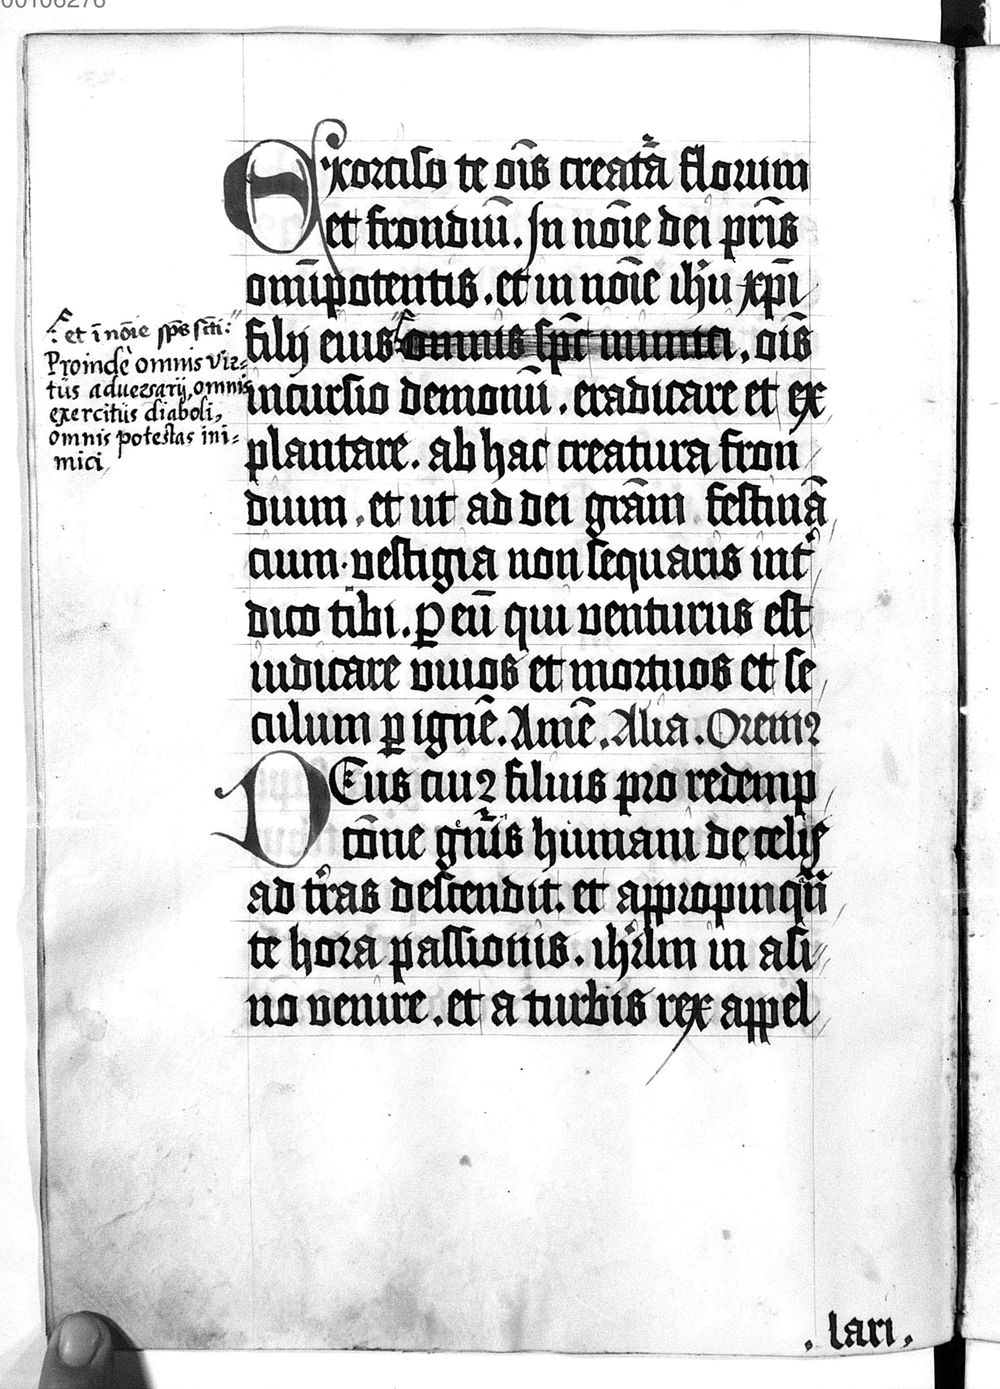 00106276
Exorciso te oīs creatᷓa florum
et frondiuʒ. In noīe dei pr̄is
omīpotentis. et in noīe ihū xp̄i
filij eius omnis sp̄c inimici, oīs
incursio demonū. eradicare et ex
plantare. ab hac creatura fron
dium, et ut ad dei gr̄am festinā
cium. vestigia non sequaris int̾
dico tibi. ꝑ eū qui venturus est
iudicare viuos et mortuos et se
culum ꝑ ignē. Amē. Alia. Oremꝰ
DEus cuiꝰ filius pro redemp
cōne gn̄is humani de celis
ad t̾ras descendit. et appropinqᷓn
te hora passionis. ihr̄lm in asi
no venire. et a turbis rex appel
. lari.
et ī nōie sp̄s sc̄ti:
Proinde omnis vir=
tus aduersarij, omnis
exercitus diaboli,
omnis potestas ini=
mici